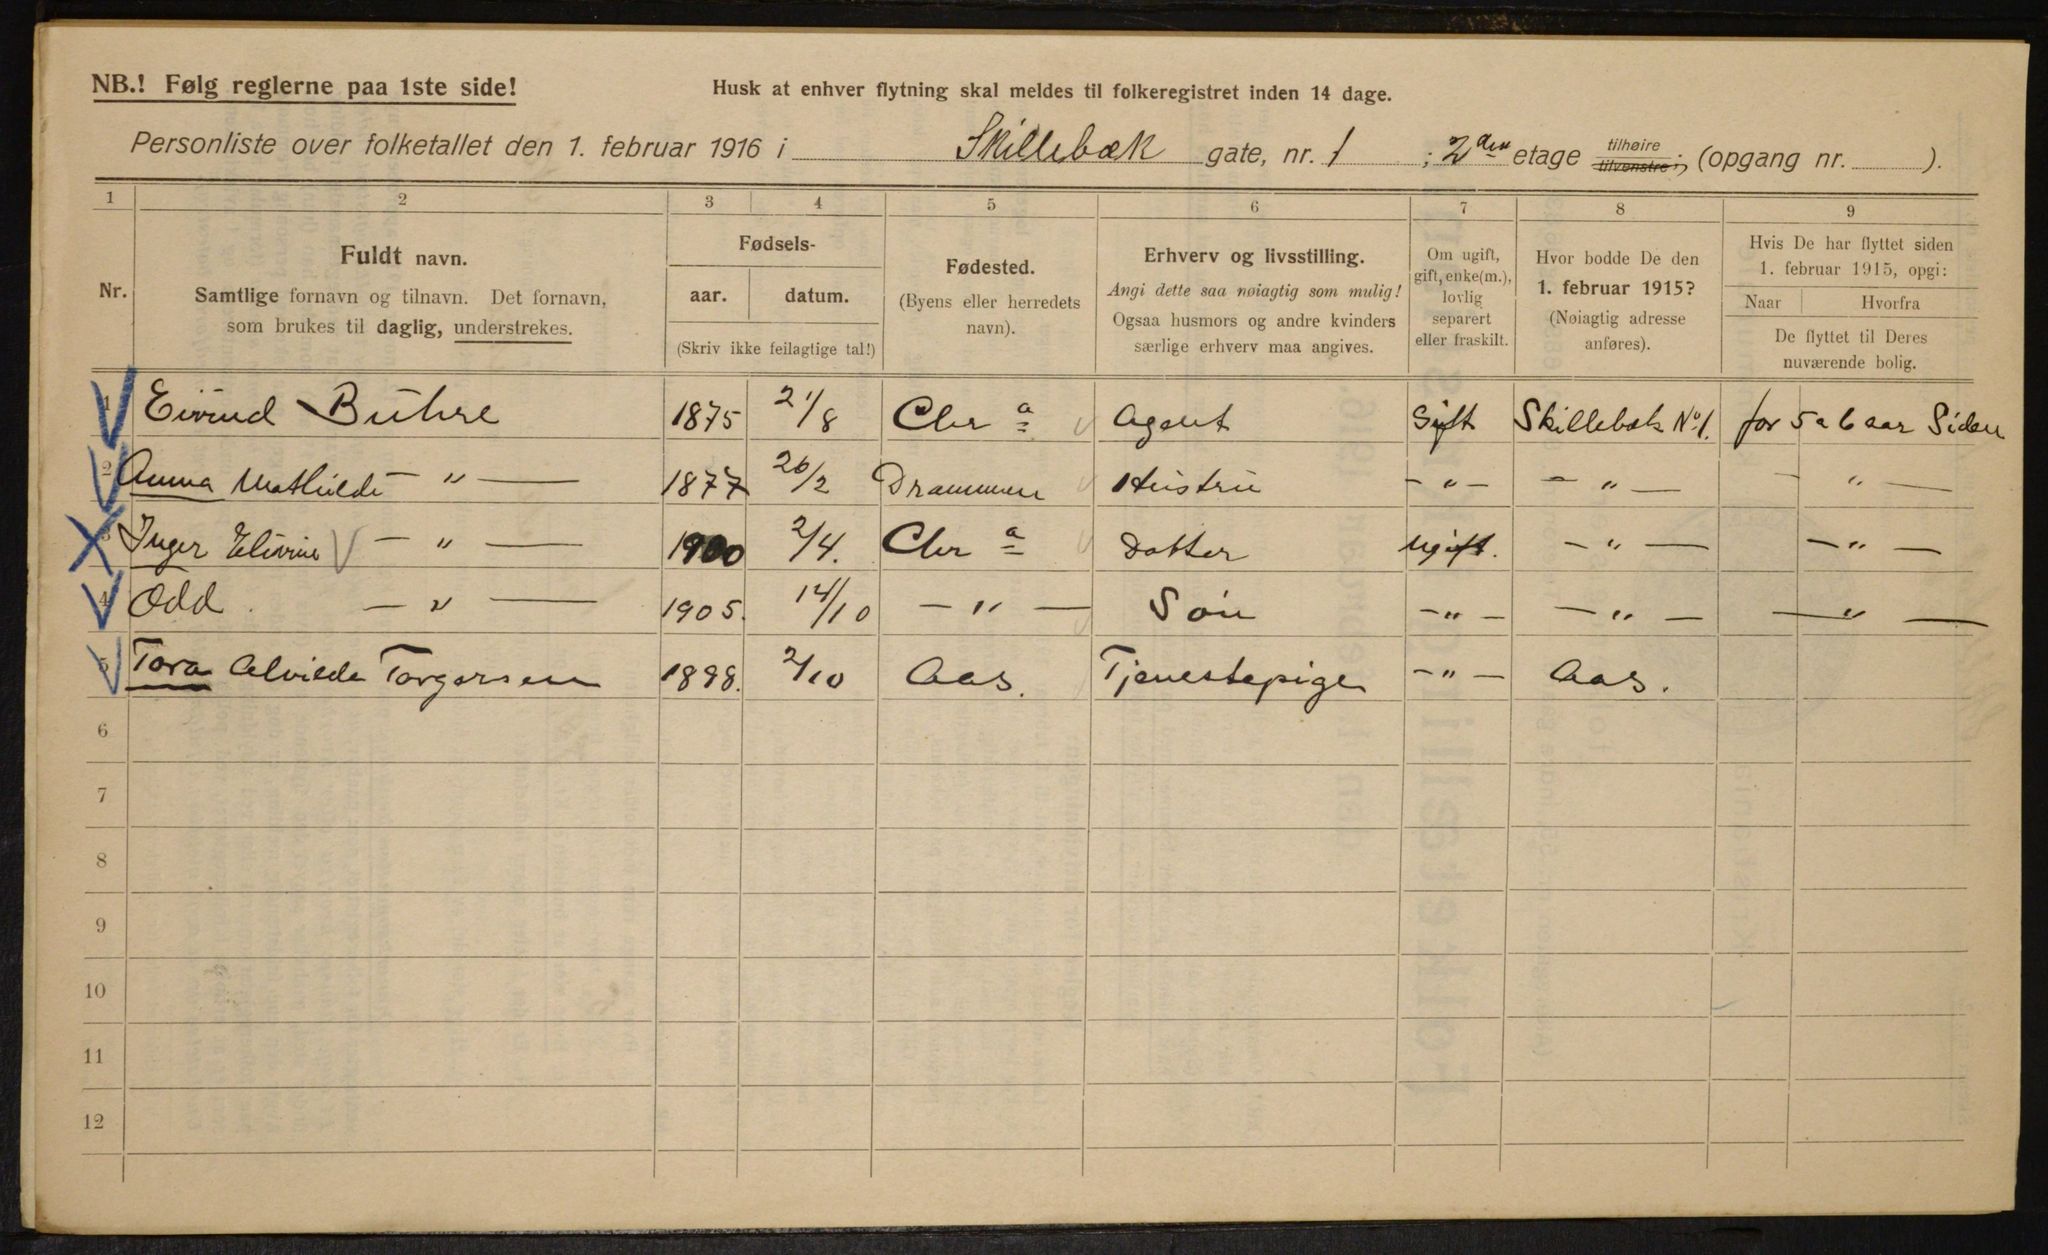 NB.! Følg reglerne paa 1ste side! Husk at enhver flytning skal meldes til folkeregistret inden 14 dage.
Personliste over folketallet den 1. februar 1916 i Skillebæk gate, nr. 1 ; 2den etage tilhøire tilvenstre; (opgang nr. ).
1 2 3 4 5 6 7 8 9
Nr.
Fuldt navn.
Samtlige fornavn og tilnavn. Det fornavn,
som brukes til daglig, understrekes.
Fødsels-
aar. datum.
(Skriv ikke feilagtige tal!)
Fødested.
(Byens eller herredets
navn).
Erhverv og livsstilling.
Angi dette saa nøiagtig som mulig!
Ogsaa husmors og andre kvinders
særlige erhverv maa angives.
Om ugift,
gift, enke(m.),
lovlig
separert
eller fraskilt.
Hvor bodde De den
1. februar 1915?
(Nøiagtig adresse
anføres).
Hvis De har flyttet siden
1. februar 1915, opgi:
Naar Hvorfra
De flyttet til Deres
nuværende bolig.
1 Eivind Buhre 1875 21/8 Chr a Agent Gift Skillebæk No 1. for 5 a 6 aar Siden
2 Anna Mathilde — " — 1877 26/2 Drammen Hustru — " — — " — — " —
3 Inger — " — 1900 2/4. Chr a Datter Ugift. — " — — " —
4 Odd. — " — 1905. 14/10 — " — Søn — " — — " — — " —
5 Tora Alvilde Torgersen 1898. 2/10 Aas. Tjenestepige — " — Aas.
6
7
8
9
10
11
12